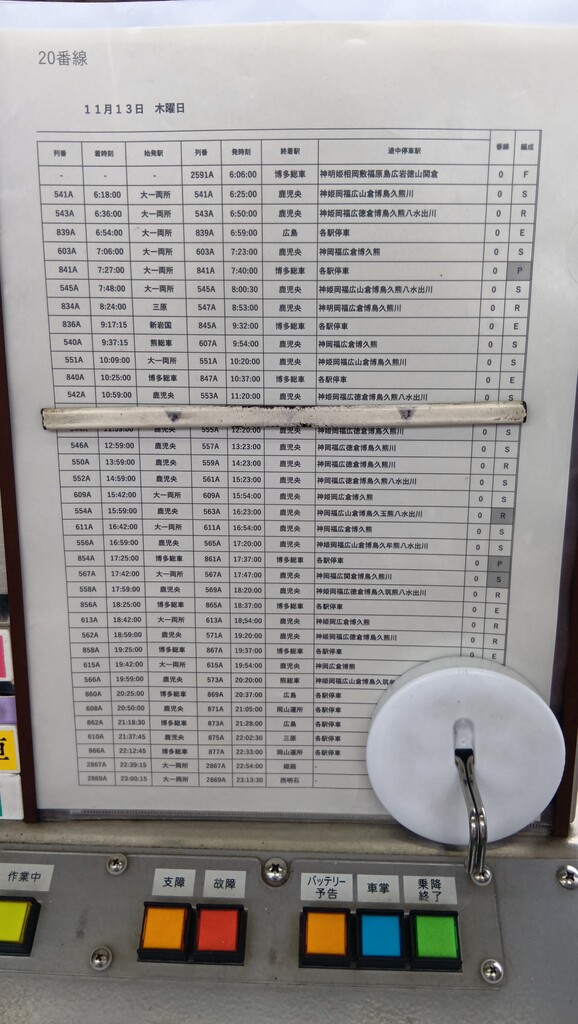 20番線
11月13日 木曜日
列番 着時刻 始発駅 列番 発時刻 終着駅 途中停車駅 番線 編成
- - - 2591A 6:06:00 博多総車 神明姫相岡敷福原島広岩徳山関倉 0 F
541A 6:18:00 大一両所 541A 6:25:00 鹿児央 神姫岡福広山倉博鳥久熊川 0 S
543A 6:36:00 大一両所 543A 6:50:00 鹿児央 神姫岡福広徳倉博鳥久熊八水出川 0 R
839A 6:54:00 大一両所 839A 6:59:00 広島 各駅停車 0 E
603A 7:06:00 大一両所 603A 7:23:00 鹿児央 神岡福広倉博久熊 0 S
841A 7:27:00 大一両所 841A 7:40:00 博多総車 各駅停車 0 P
545A 7:48:00 大一両所 545A 8:00:30 鹿児央 神姫岡福広山倉博鳥久熊八水出川 0 S
834A 8:24:00 三原 547A 8:53:00 鹿児央 神明岡福広倉博鳥久熊川 0 R
836A 9:17:15 新岩国 845A 9:32:00 博多総車 各駅停車 0 E
540A 9:37:15 熊総車 607A 9:54:00 鹿児央 神姫岡福広倉博久熊 0 S
551A 10:09:00 大一両所 551A 10:20:00 鹿児央 神姫岡福広山倉博鳥久熊川 0 S
840A 10:25:00 博多総車 847A 10:37:00 博多総車 各駅停車 0 E
542A 10:59:00 鹿児央 553A 11:20:00 鹿児央 神姫岡福広徳倉博鳥久熊八水出川 0 S
11:59:00 鹿児央 555A 12:20:00 鹿児央 神姫岡福広山倉博鳥久熊川 0 S
546A 12:59:00 鹿児央 557A 13:23:00 鹿児央 神岡福広徳倉博鳥久熊川 0 S
550A 13:59:00 鹿児央 559A 14:23:00 鹿児央 神姫岡福広徳倉博鳥久熊川 0 R
552A 14:59:00 鹿児央 561A 15:23:00 鹿児央 神姫岡福広徳倉博鳥久熊八水出川 0 S
609A 15:42:00 大一両所 609A 15:54:00 鹿児央 神姫岡広倉博久熊 0 S
554A 15:59:00 鹿児央 563A 16:23:00 鹿児央 神岡福広山倉博鳥久玉熊八出川 0 R
611A 16:42:00 大一両所 611A 16:54:00 鹿児央 神岡福広倉博久熊 0 S
556A 16:59:00 鹿児央 565A 17:20:00 鹿児央 神姫岡福広山倉博鳥久牟熊八水出川 0 S
854A 17:25:00 博多総車 861A 17:37:00 博多総車 各駅停車 0 P
567A 17:42:00 大一両所 567A 17:47:00 鹿児央 神岡福広関倉博鳥久熊川 0 S
558A 17:59:00 鹿児央 569A 18:20:00 鹿児央 神姫岡福広徳倉博鳥久筑熊八水出川 0 R
856A 18:25:00 博多総車 865A 18:37:00 博多総車 各駅停車 0 E
613A 18:42:00 大一両所 613A 18,54:00 鹿児央 神姫岡広倉博久熊 0 R
562A 18:59:00 鹿児央 571A 19:20:00 鹿児央 神姫岡福広徳倉博鳥久熊川 0 R
858A 19:25:00 博多総車 867A 19:37:00 博多総車 各駅停車 0 E
615A 19:42:00 大一両所 615A 19:54:00 鹿児央 神岡広倉博熊
566A 19:59:00 鹿児央 573A 20:20:00 熊総車 神姫岡福広山倉博鳥久筑
860A 20:25:00 博多総車 869A 20:37:00 広島 各駅停車
608A 20:50:00 鹿児央 871A 21:05:00 岡山運所 各駅停車
862A 21:18:30 博多総車 873A 21:28:00 広島 各駅停車
610A 21:37:45 鹿児央 875A 22:02:30 三原 各駅停車
866A 22:12:45 博多総車 877A 22:33:00 岡山運所 各駅停車
2867A 22:39:15 大一両所 2867A 22:54:00 姫路
2869A 23:00:15 大一両所 2869A 23:13:30 西明石
作業中 支障 故障 バッテリー予告 車掌 乗降終了